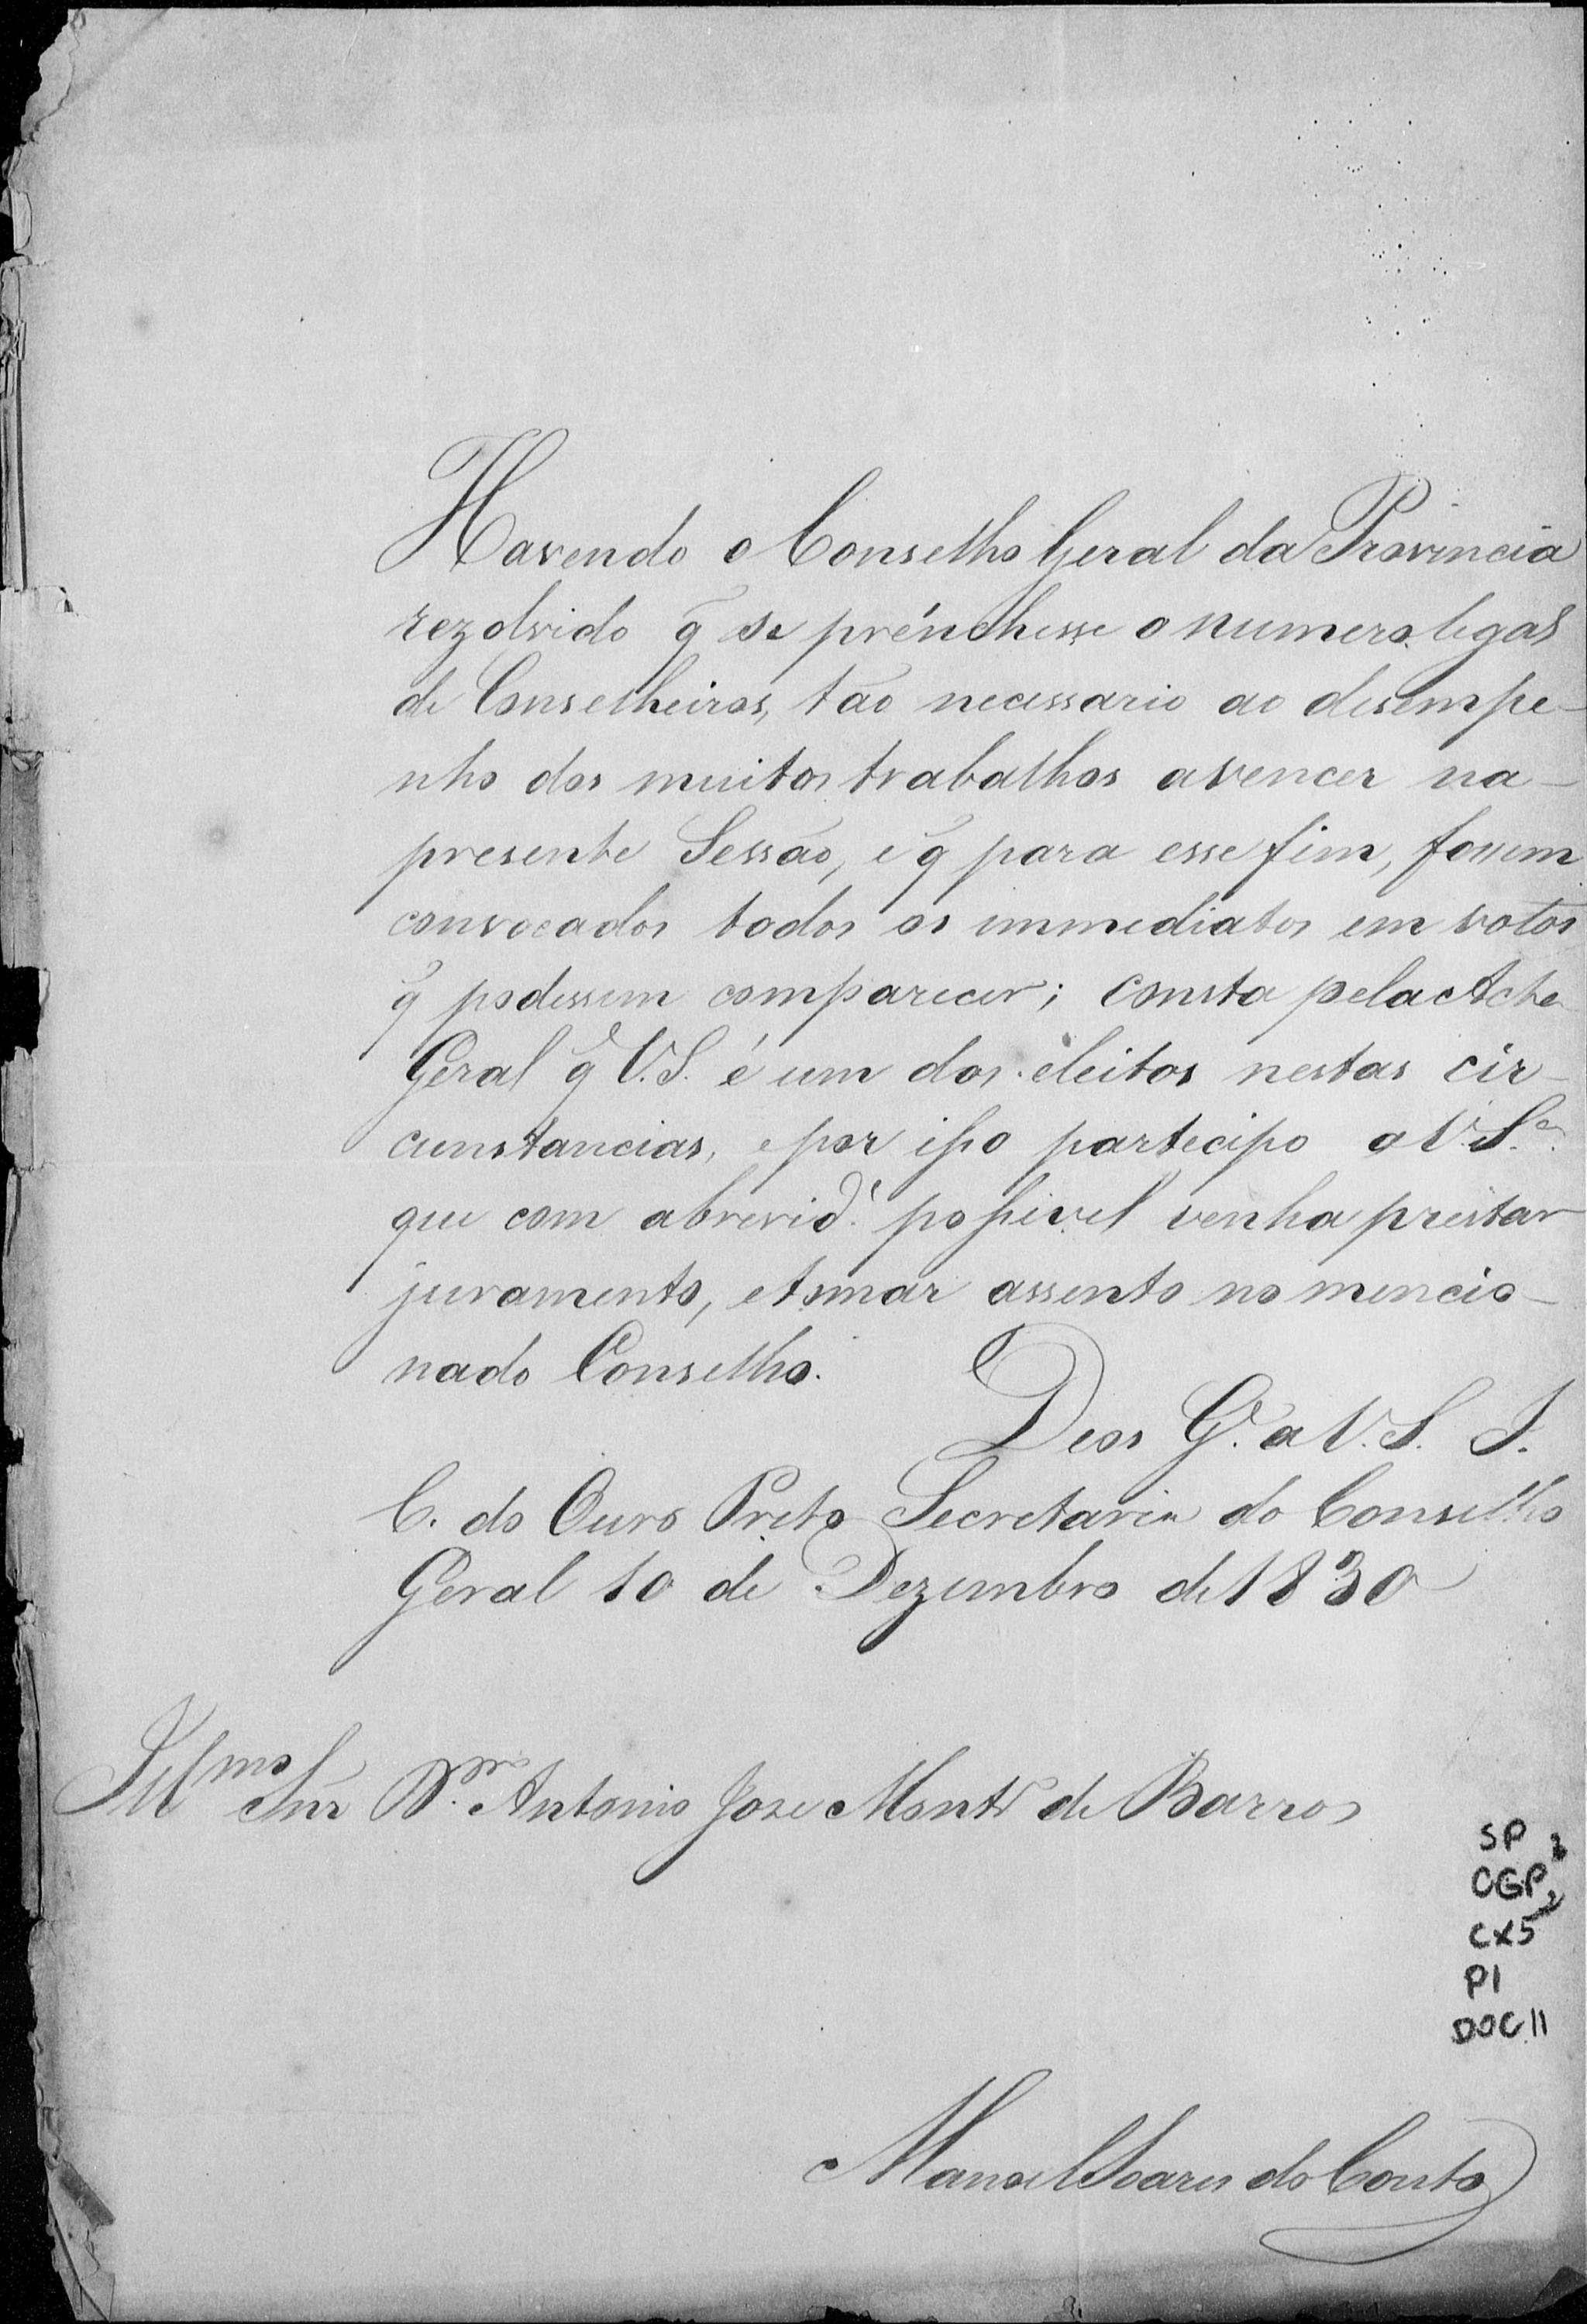 Havendo o Conselho Geral da Provincia
rezolvido q̃ se prénchesse o numero legal
de Conselheiros, tão necessario ao desempe-
nho dos muitos trabalhos avencer na-
presente Sessão, e q̃ para esse fim, fossem
convocados todos os immediatos em votos
q̃ podessem comparecer; consta pela Acta
Geral q̃ V.S. é um dos eleitos nestas cir-
cunstancias, e por isso partecipo a V.Sª.
que com abrevid.ᵉ possivel venha prestar
juramento, etomar assento no mencio-
nado Conselho.
Deos G.ᵉ a V.S. I.
C. do Ouro Preto Secretaria do Conselho
Geral 10 de Dezembro de 1830
Illmo Snr Dr. Antonio Jose Montrº de Barros
SP
CGP
CX5
P1
DOC 11
Manoel Soares do Couto